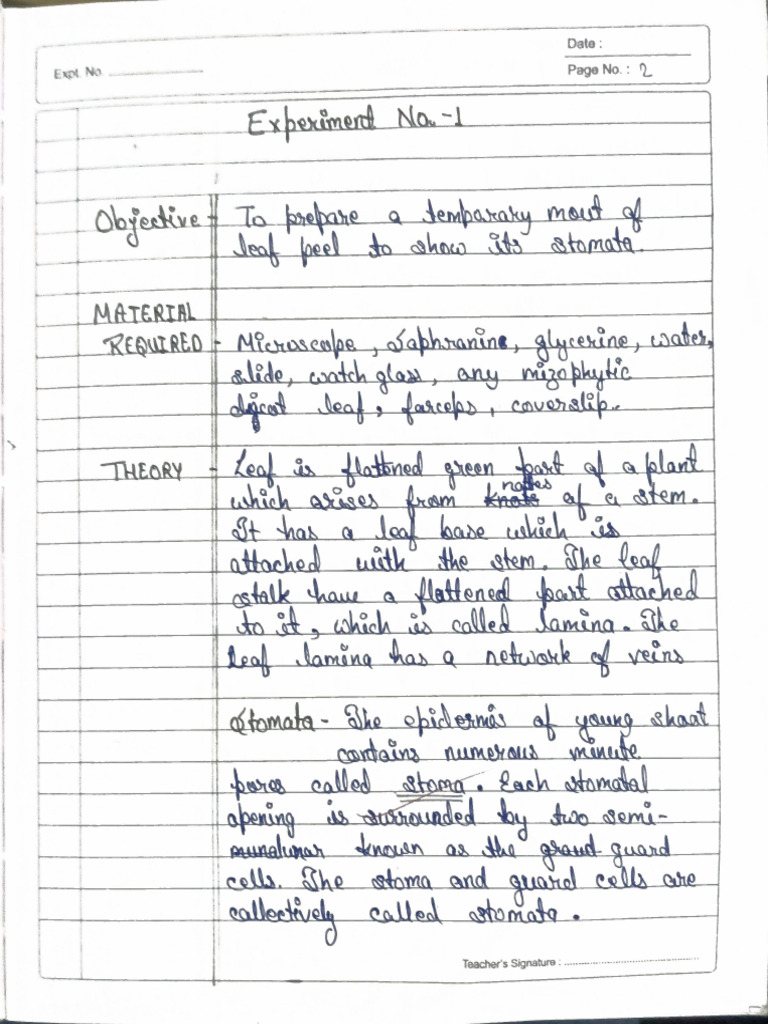 Expt. No.
Date :
Page No. : 2
Experiment No. -1
Objective - To prepare a temparary mout of
leaf peel to show its stomata.
MATERIAL
REQUIRED - Microscope, Saphranine, glycerine, water,
slide, watch glass, any mizophytic
dicot leaf, farceps, coverslip.
THEORY - Leaf is flattned green part of a plant
nodes
which arises from knots of a stem.
It has a leaf base which is
attached with the stem. The leaf
stalk have a flattened part attached
to it, which is called lamina. The
leaf lamina has a network of veins
Stomata - The epidermis of young shoot
contains numerous minute
pores called stoma. Each stomatal
opening is surrounded by two semi-
lunar known as the guard
cells. The stoma and guard cells are
collectively called stomata.
Teacher's Signature :